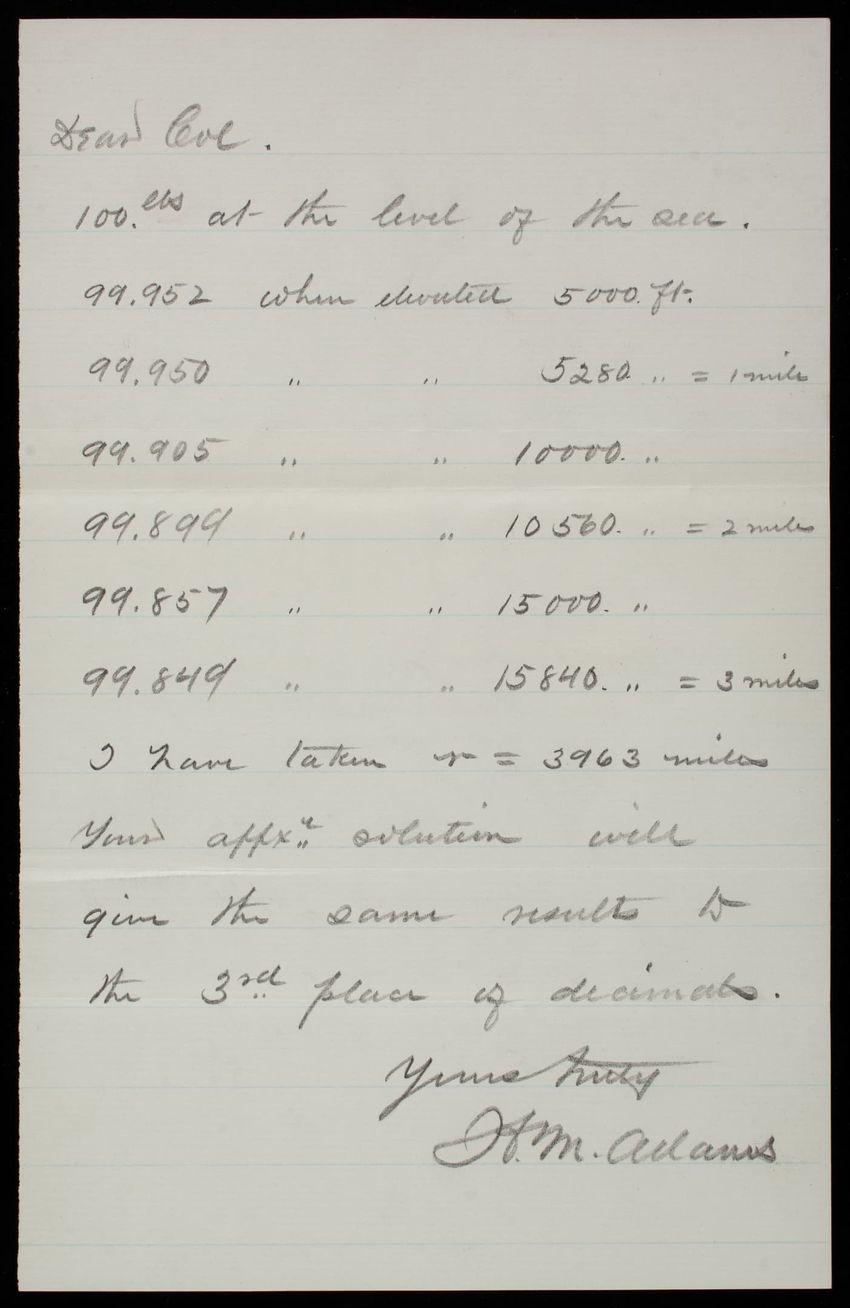 Dear Col.
100.lbs at the level of the sea.
99.952 when elevated 5000. ft.
99.950 " " 5280. " = 1 mile
99.905 " " 10000. "
99.899 " " 10560. " = 2 miles
99.857 " " 15000. "
99.849 " " 15840. " = 3 miles
I have taken r = 3963 miles
Your appxn solution will
give the same results to
the 3rd place of decimals.
Yours truly
H. M. Adams